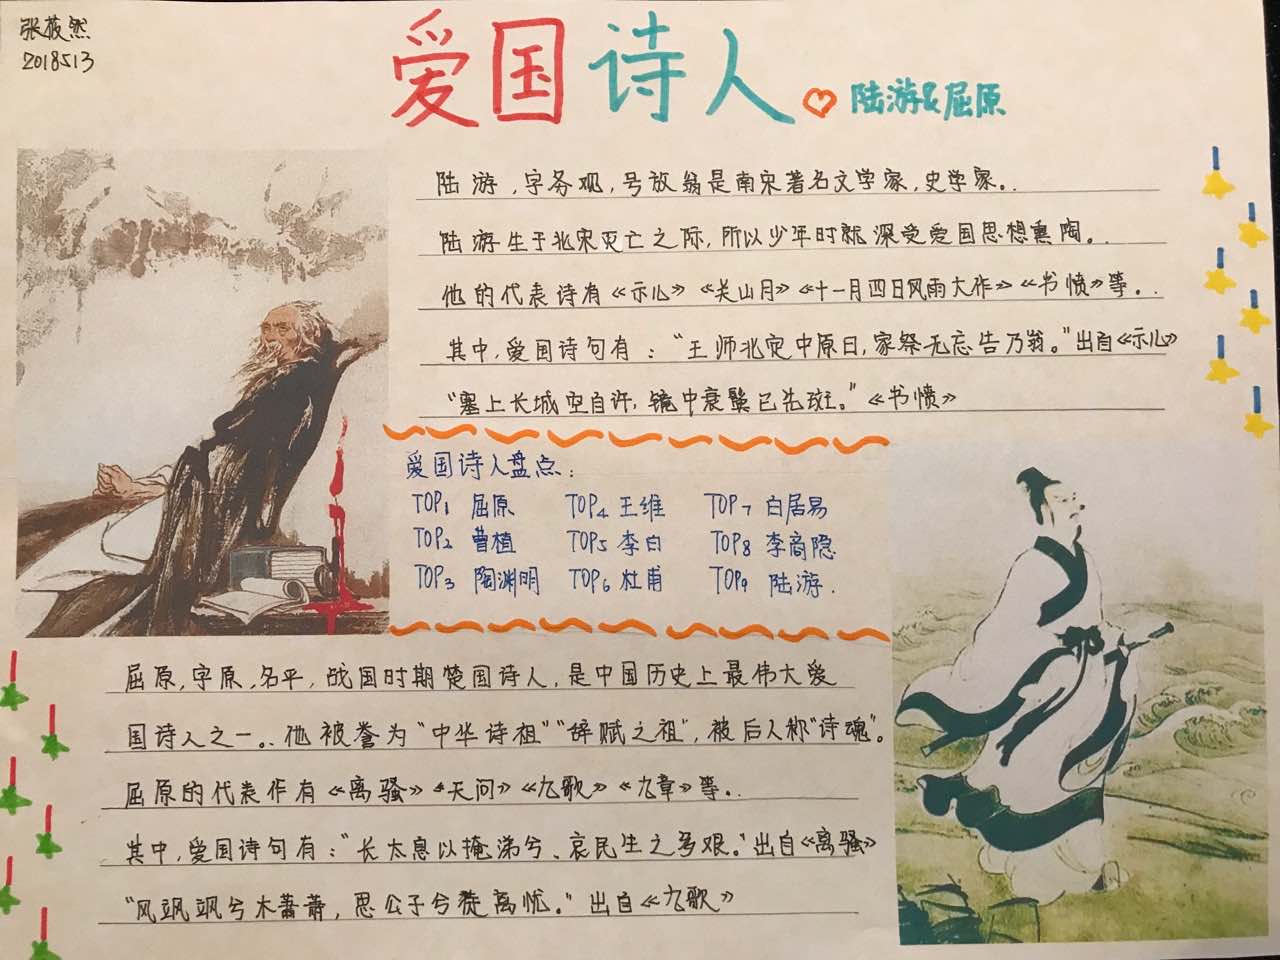 张薇然
2018513
爱国诗人
陆游&屈原
陆游,字务观,号放翁是南宋著名文学家,史学家。
陆游生于北宋灭亡之际,所以少年时就深受爱国思想熏陶。
他的代表诗有《示儿》《关山月》《十一月四日风雨大作》《书愤》等。
其中,爱国诗句有:“王师北定中原日,家祭无忘告乃翁。”出自《示儿》
“塞上长城空自许,镜中衰鬓已先斑。”《书愤》
爱国诗人盘点:
TOP1 屈原 TOP4 王维 TOP7 白居易
TOP2 曹植 TOP5 李白 TOP8 李商隐
TOP3 陶渊明 TOP6 杜甫 TOP9 陆游.
屈原,字原,名平,战国时期楚国诗人,是中国历史上最伟大爱
国诗人之一。他被誉为“中华诗祖”“辞赋之祖”,被后人称“诗魂”。
屈原的代表作有《离骚》《天问》《九歌》《九章》等。
其中,爱国诗句有:“长太息以掩涕兮、哀民生之多艰。”出自《离骚》
“风飒飒兮木萧萧,思公子兮徒离忧。”出自《九歌》